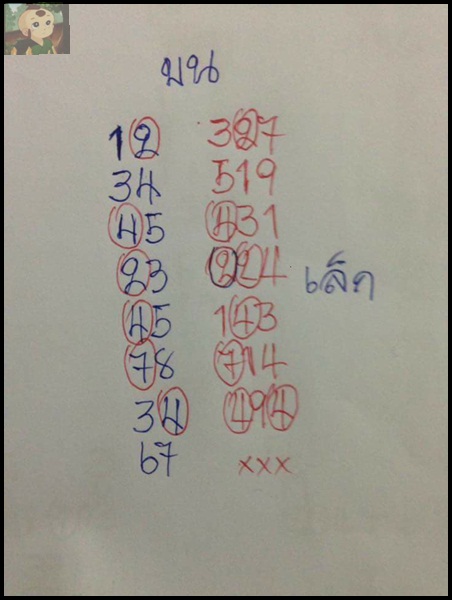 บน
12 327
34 519
45 431
23 224
เล็ก
45 143
78 714
34 494
67 xxx